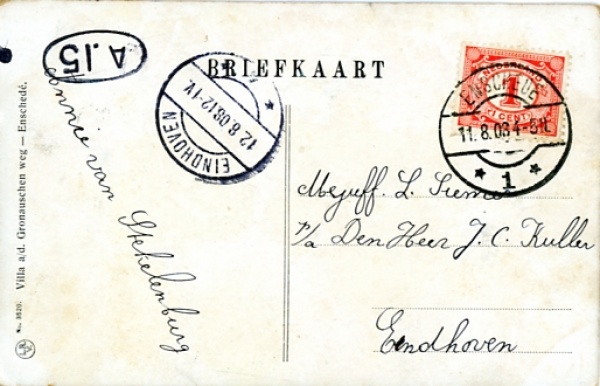 A.15
BRIEFKAART
NEDERLAND
1
CENT
ENSCHEDE
11.8.08 4-5N.
1
EINDHOVEN
12.8.08.12-1V.
Annie van Stekelenburg
Mejuff. L. Siemo
p/a Den Heer J. C. Kuller
Eindhoven
No. 3520. Villa a/d. Gronauschen weg — Enschedé.